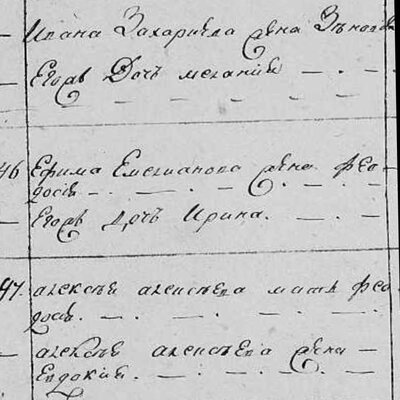 Ивана Захариева жена Зѣнов
Егоръ Дочь меланий
46 Ефима Емелианова жена Фео-
досія
Егоръ дочь Ирина.
97. алексѣя алексѣева мать Фео
досія.
алексѣя алексѣева жена
Евдокия.